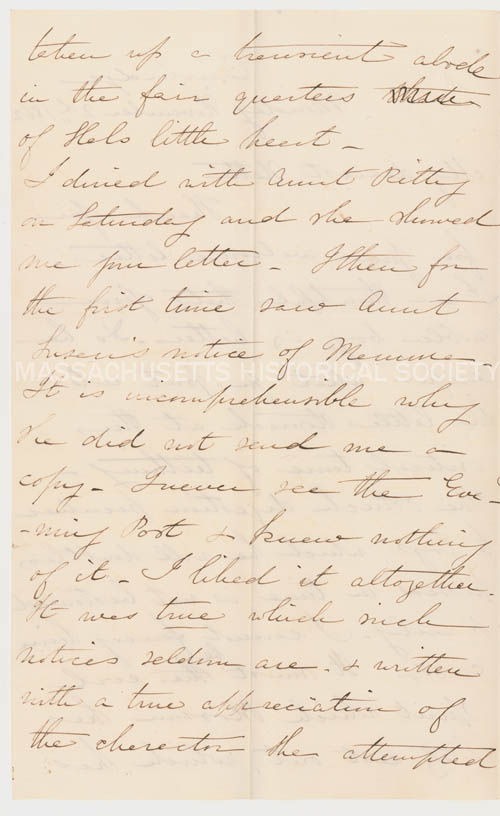 taken up a transient abode
in the fair quarters
of Hels little heart -
I dined with Aunt Kitty
on Saturday and she showed
me your letter - I then for
the first time saw Aunt
Susan's notice of Mamma -
MASSACHUSETTS HISTORICAL SOCIETY
It is incomprehensible why
she did not send me a
copy - I never see the Eve-
-ning Post & knew nothing
of it - I liked it altogether.
It was true which such
notices seldom are - & written
with a true appreciation of
the character she attempted